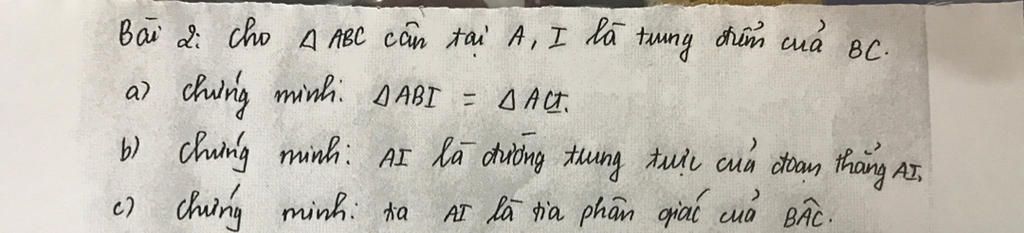 Bài 2: cho △ ABC cân tại A, I là trung điểm của BC.
a) chứng minh: △ABI = △ACI.
b) chứng minh: AI là đường trung trực của đoạn thẳng AI.
c) chứng minh: tia AI là tia phân giác của BÂC.